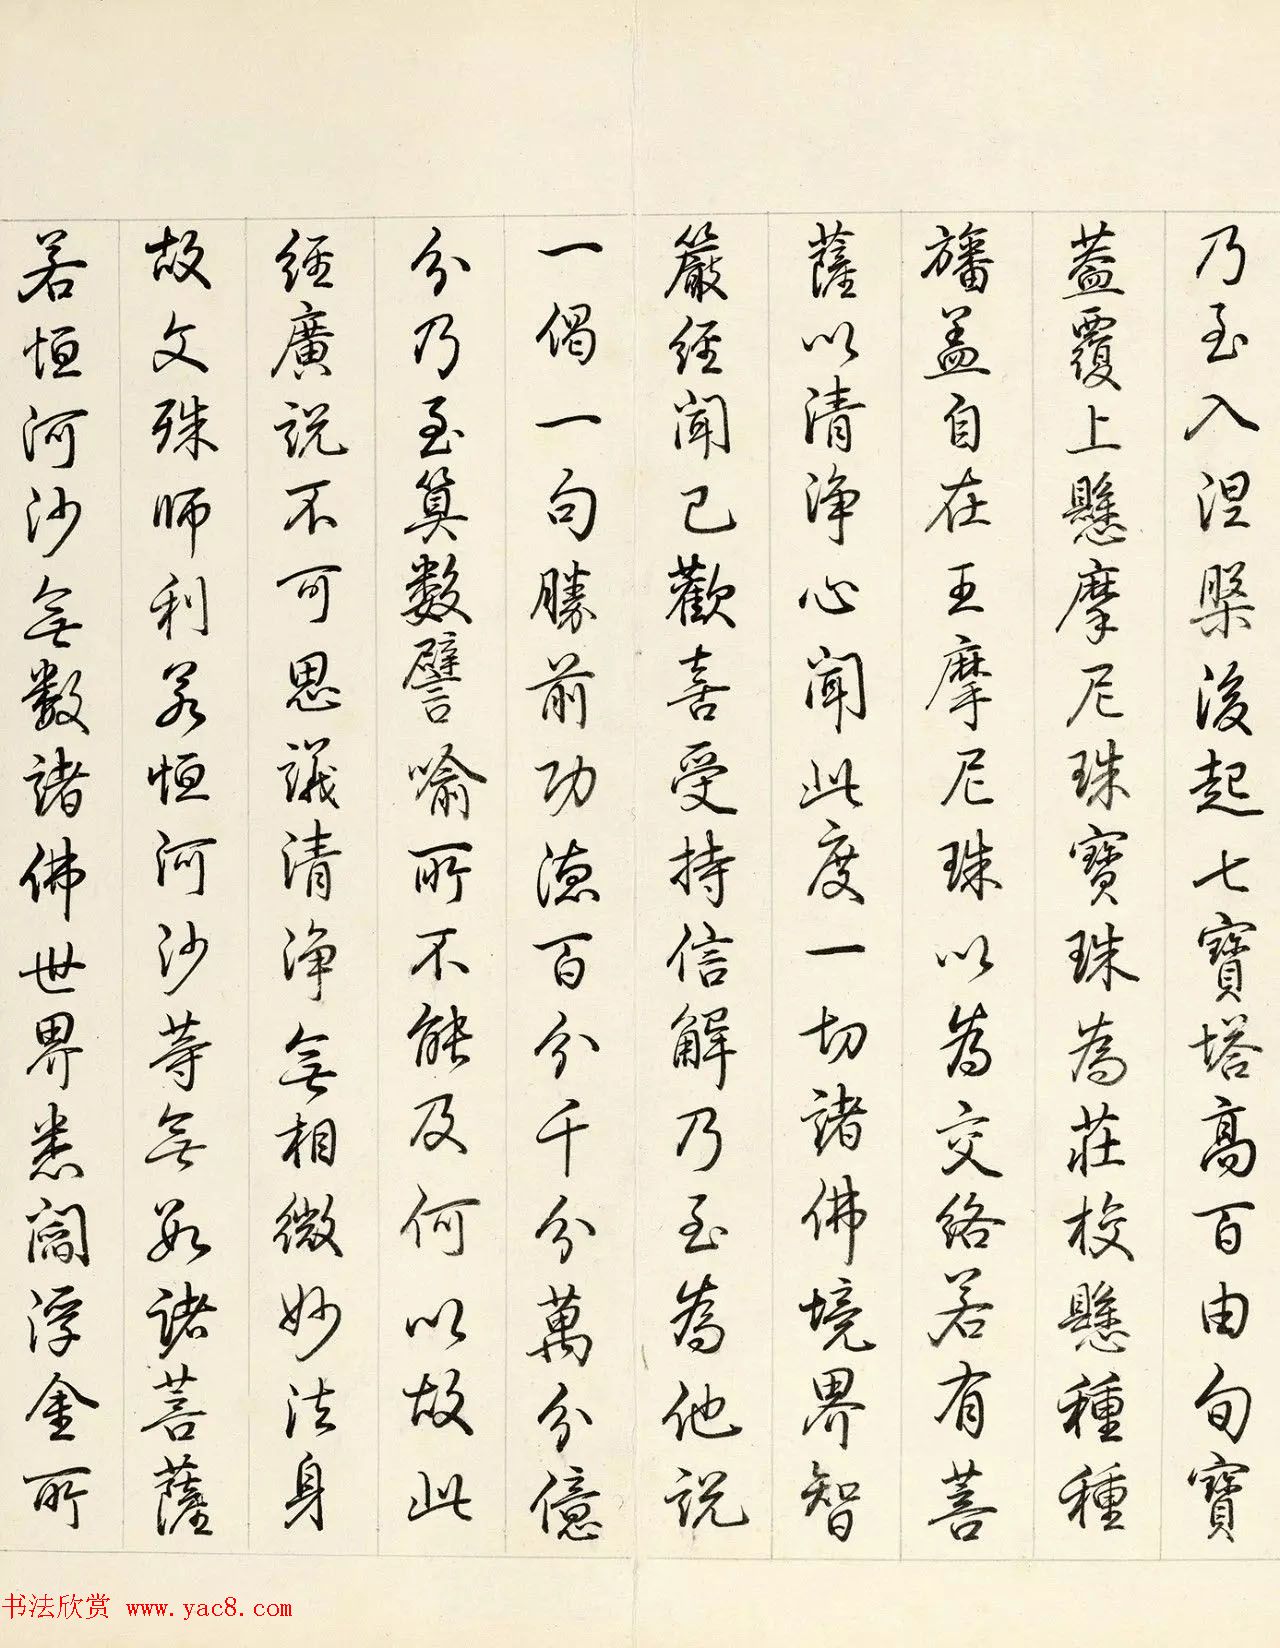 乃至入涅槃後起七寶塔高百由旬寶
蓋覆上懸摩尼珠寶珠為莊校懸種種
旛盖自在王摩尼珠以為交絡若有菩
薩以清淨心聞此度一切諸佛境界智
嚴經聞已歡喜受持信解乃至為他說
一偈一句勝前功德百分千分萬分億
分乃至算數譬喻所不能及何以故此
經廣説不可思議清淨無相微妙法身
故文殊師利若恒河沙等無數諸菩薩
若恒河沙無數諸佛世界悉閻浮金所
书法欣赏 www.yac8.com